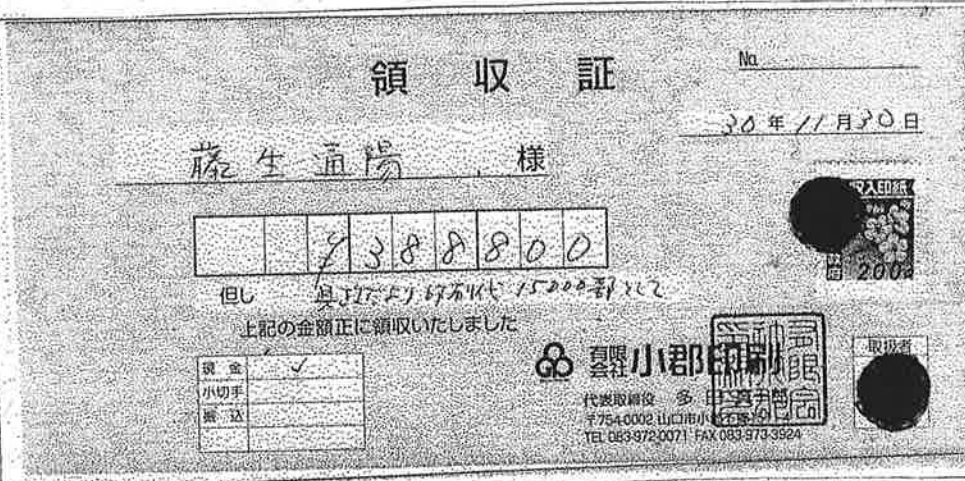 領収証
No.
30年11月30日
藤生通陽 様
¥388800
但し 県政だより 印刷代 15000部として
上記の金額正に領収いたしました
収入印紙
200
現金 ✓
小切手
振込
有限会社 小郡印刷
代表取締役 多田
〒754-0002 山口市小郡
TEL 083-972-0071 FAX 083-973-3924
取扱者